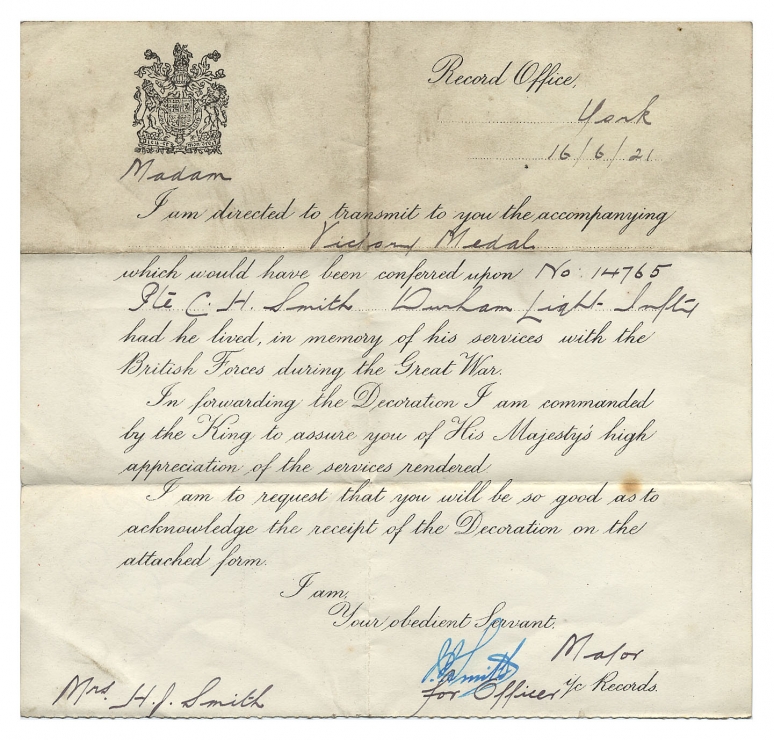 Record Office,
York
16/6/21
Madam
I am directed to transmit to you the accompanying
Victory Medal
which would have been conferred upon No 14765
Pte C. H. Smith Durham Light Inftry
had he lived, in memory of his services with the
British Forces during the Great War.
In forwarding the Decoration I am commanded
by the King to assure you of His Majesty's high
appreciation of the services rendered
I am to request that you will be so good as to
acknowledge the receipt of the Decoration on the
attached form.
I am,
Your obedient Servant.
Smith Major
for Officer i/c Records.
Mrs. H. J. Smith